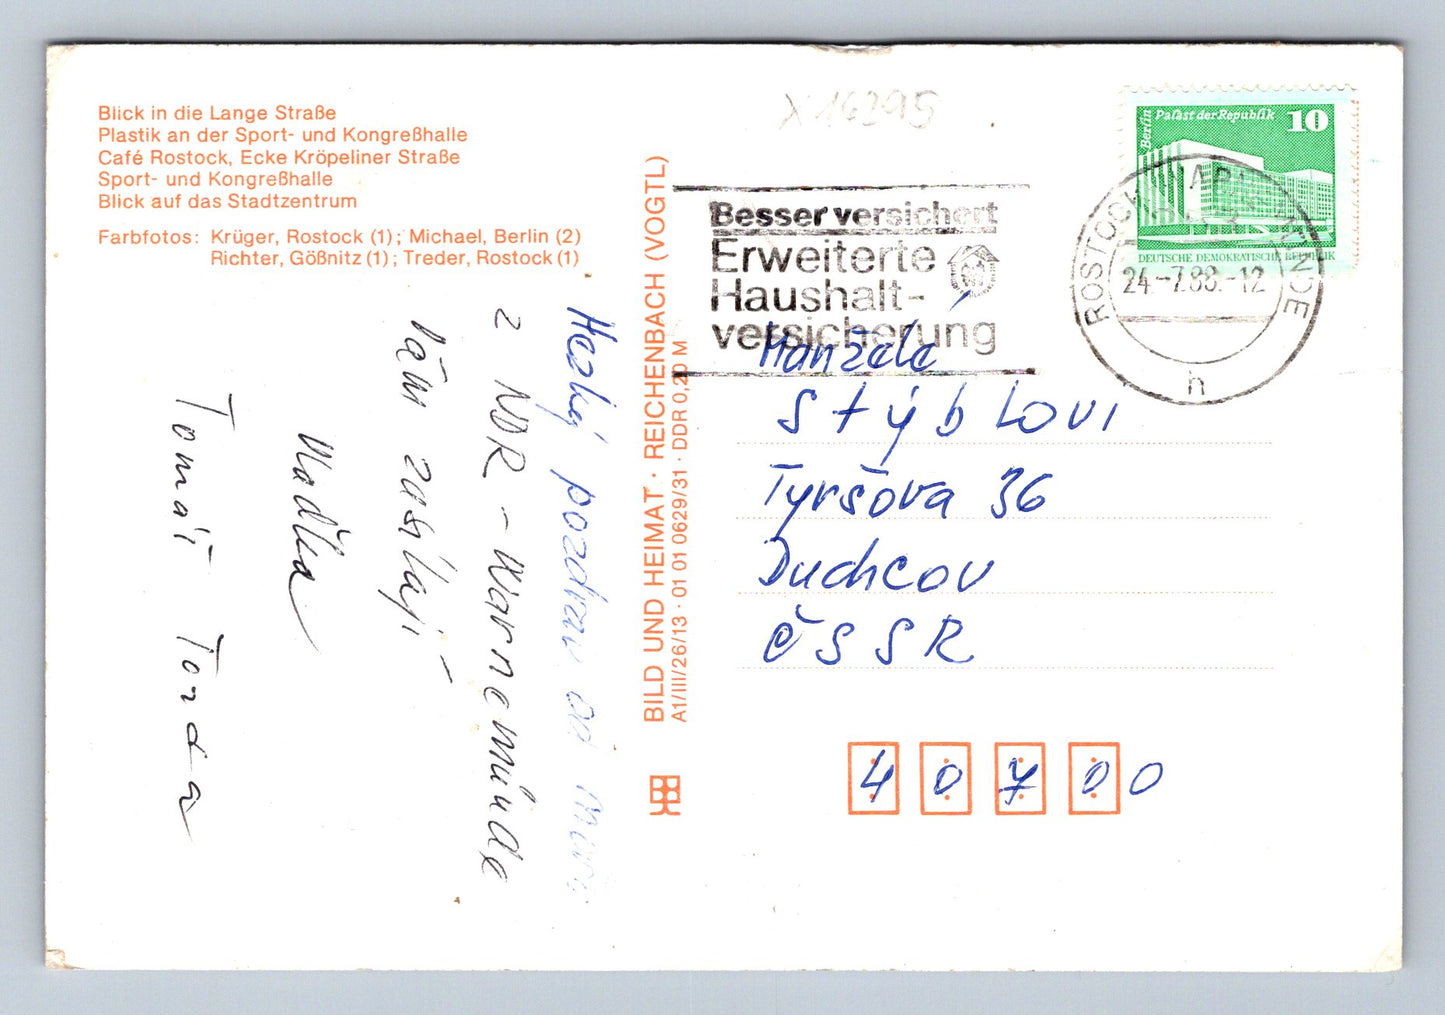 Blick in die Lange Straße
Plastik an der Sport- und Kongreßhalle
Café Rostock, Ecke Kröpeliner Straße
Sport- und Kongreßhalle
Blick auf das Stadtzentrum
Farbfotos: Krüger, Rostock (1); Michael, Berlin (2)
Richter, Gößnitz (1); Treder, Rostock (1)
Hezký pozdrav od moře
z NDR - Warnemünde
Vám zasílají
Naďka
Tomáš Tonda
BILD UND HEIMAT · REICHENBACH (VOGTL)
A1/III/26/13 · 01 01 0629/31 · DDR 0,20 M
X 16295
Besser versichert
Erweiterte
Haushalt-
versicherung
Berlin Palast der Republik 10
DEUTSCHE DEMOKRATISCHE REPUBLIK
ROSTOCK-WARNEMÜNDE
24.-7.88.-12
h
Manželé
Stýblovi
Tyršova 36
Duchcov
ČSSR
40700